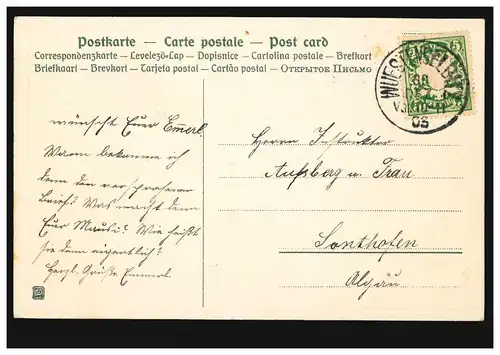 Postkarte — Carte postale — Post card
Correspondenzkarte — Levelező-Lap — Dopisnice — Cartolina postale — Brefkort
Briefkaart — Brevkort — Tarjeta postal — Cartão postal — Открытое Письмо
5
WUESTENSELBITZ
05
wünscht Euer Emerl.
Wann bekomme ich
denn den versprochenen
Brief? Was macht denn
Eur Mausi? Wie heißt
sie denn eigentlich?
Herzl. Grüße Emmerl
Herrn Instruktor
Aufsberg u. Frau
Sonthofen
Algäu